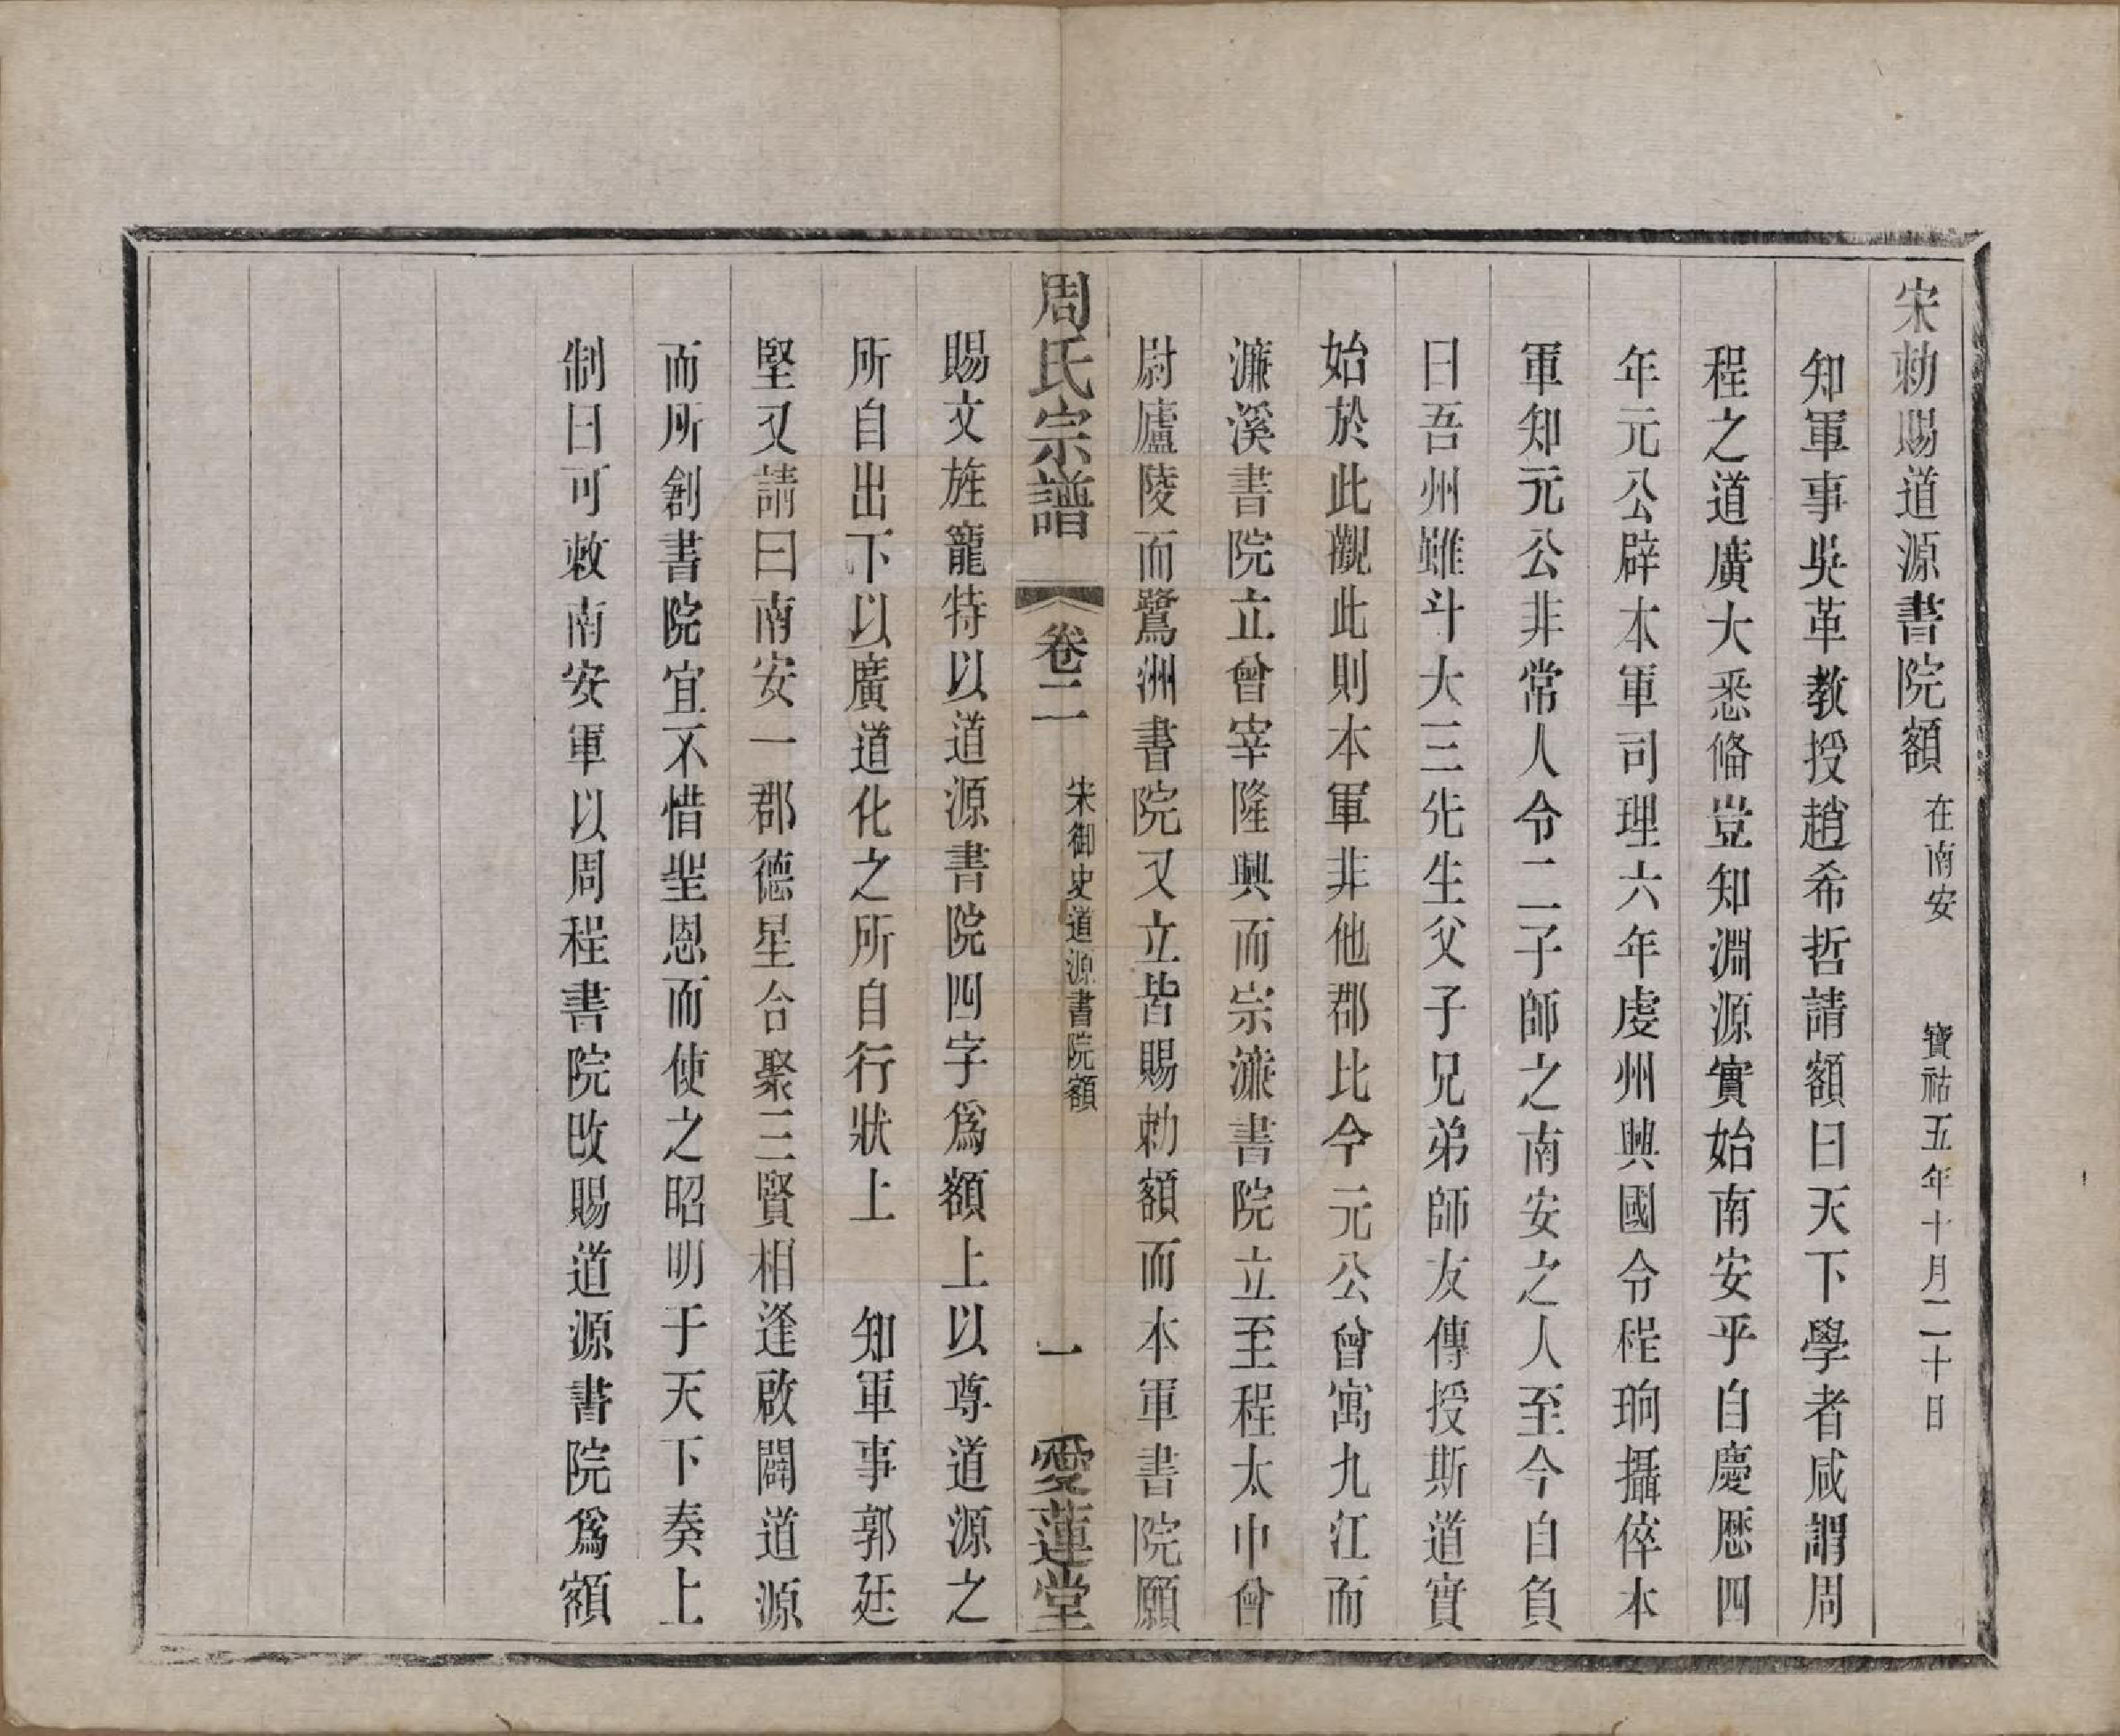 宋勅賜道源書院額 在南安 寶祐五年十月二十日
知軍事吳革教授趙希哲請額曰天下學者咸謂周
程之道廣大悉備豈知淵源實始南安乎自慶歷四
年元公辟本軍司理六年虔州興國令程珦攝倅本
軍知元公非常人令二子師之南安之人至今自負
曰吾州雖斗大三先生父子兄弟師友傳授斯道實
始於此觀此則本軍非他郡比今元公曾寓九江而
濂溪書院立曾宰隆興而宗濂書院立至程太中曾
尉廬陵而鷺洲書院又立皆賜勅額而本軍書院願
周氏宗譜 卷二 宋御史道源書院額 一 愛蓮堂
賜文旌寵特以道源書院四字爲額上以尊道源之
所自出下以廣道化之所自行狀上 知軍事郭廷
堅又請曰南安一郡德星合聚三賢相逢啟闢道源
而所創書院宜不惜聖恩而使之昭明于天下奏上
制曰可敕南安軍以周程書院改賜道源書院爲額